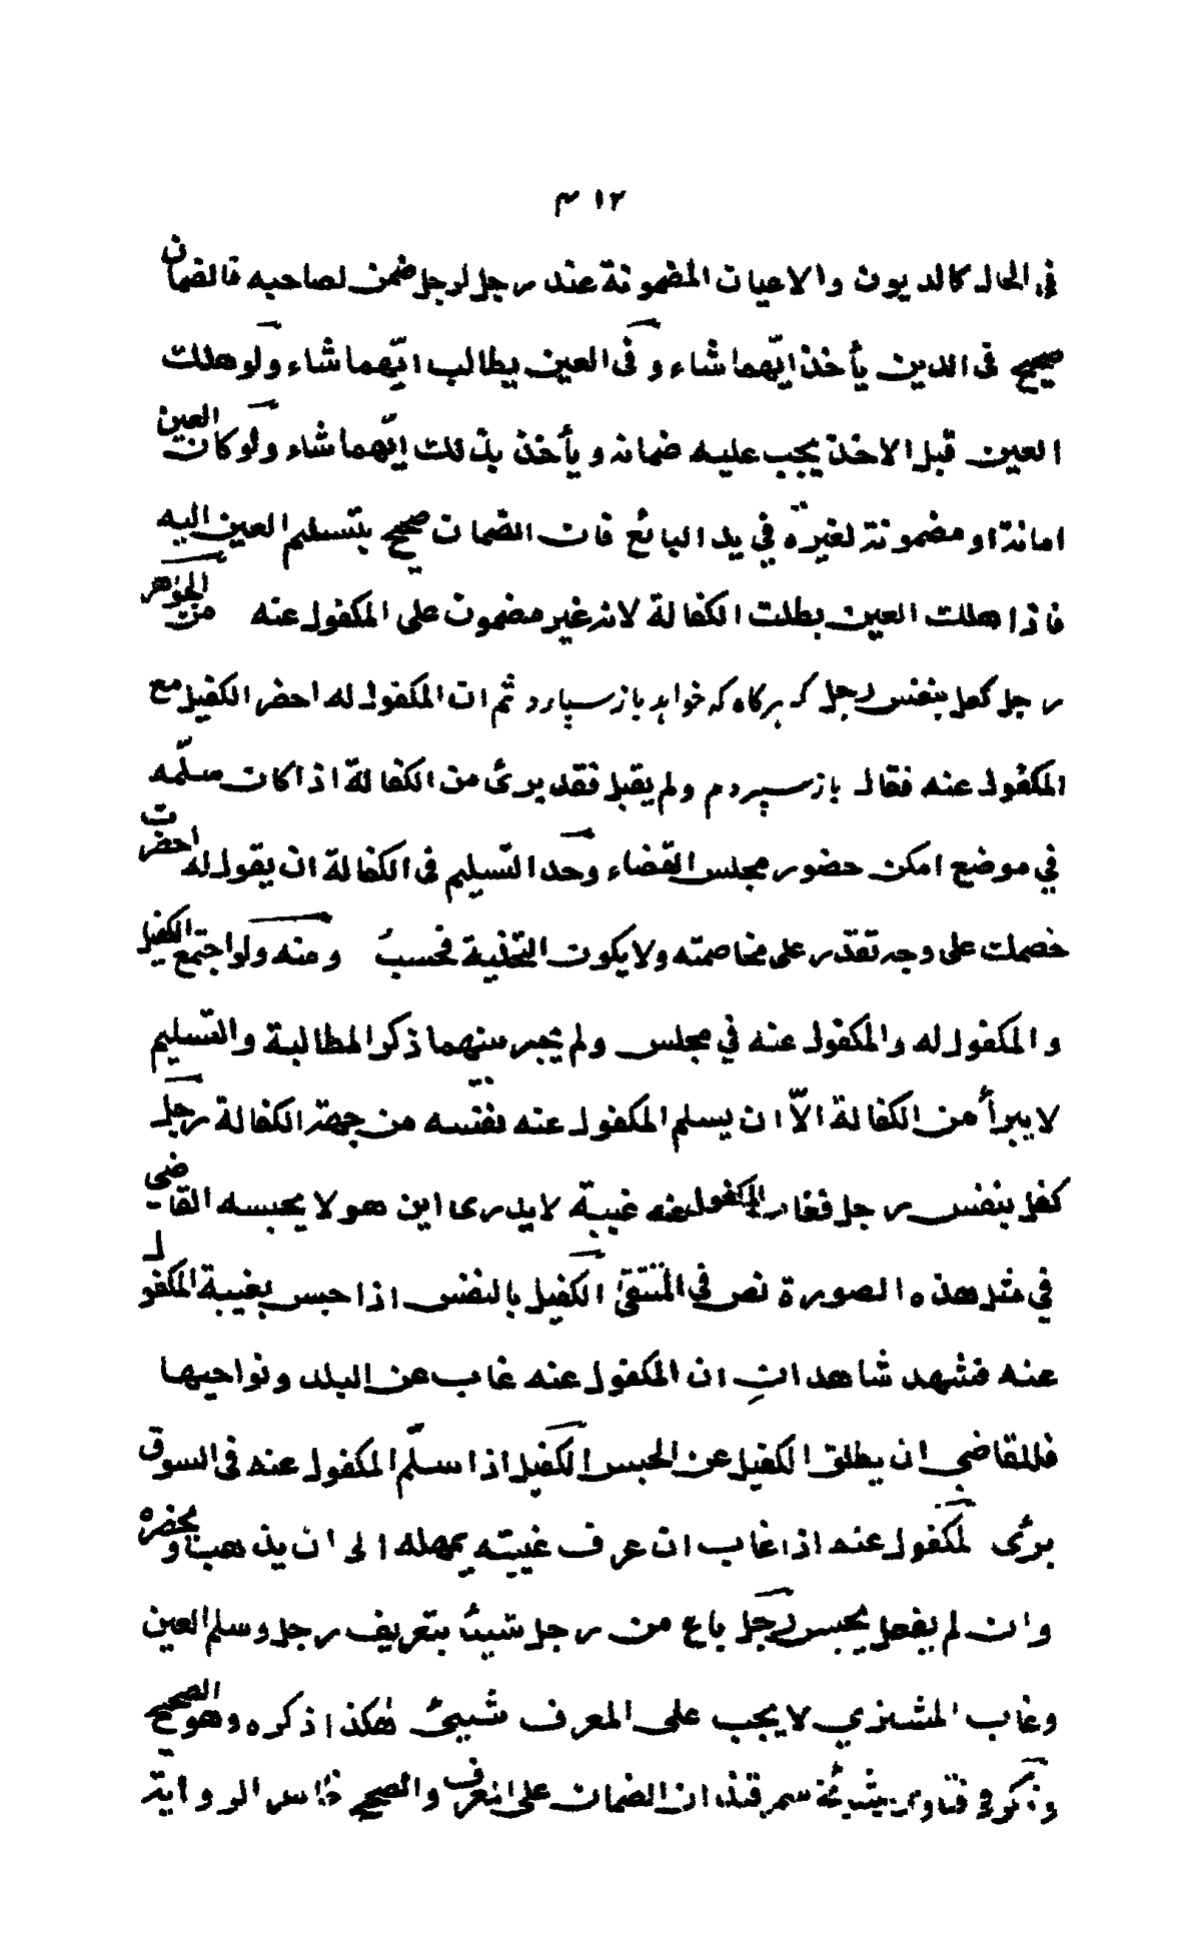 ٣١٢
في الحال كالديون والاعيان المضمونة عند رجل لرجل ضمن لصاحبه فالضمان
صحيح في الدين يأخذ ايّهما شاء وفى العين يطالب ايّهما شاء ولو هلكت
العين قبل الاخذ يجب عليه ضمانه ويأخذ بذلك ايّهما شاء ولو كان العين
امانة او مضمونة لغيره في يد البائع فان الضمان صحيح بتسليم العين اليه
فاذا هلكت العين بطلت الكفالة لانه غير مضمون على المكفول عنه من الجواهر
رجل كفل بنفس رجل كه هركاه كه خواهد باز سپارد ثم ان المكفول له احضر الكفيل مع
المكفول عنه فقال باز سپردم ولم يقبل فقد برئ من الكفالة اذا كان سلّمه
في موضع امكن حضور مجلس القضاء وحد التسليم فى الكفالة ان يقول له احضرت
خصمك على وجه تقدر على مخاصمته ولا يكون التخلية فحسب ومنه ولو اجتمع الكفيل
والمكفول له والمكفول عنه في مجلس ولم يجر بينهما ذكر المطالبة والتسليم
لا يبرأ من الكفالة الاّ ان يسلم المكفول عنه نفسه من جهة الكفالة رجل
كفل بنفس رجل فغاب المكفول عنه غيبة لا يدرى اين هو لا يحبسه القاضى
في مثل هذه الصورة نص في المنتقى الكفيل بالنفس اذا حبس بغيبة المكفول
عنه فشهد شاهدان ان المكفول عنه غاب عن البلد ونواحيها
فللقاضي ان يطلق الكفيل عن الحبس الكفيل اذا سلّم المكفول عنه فى السوق
برئ المكفول عنه اذا غاب ان عرف غيبته يمهله الى ان يذهب ويحضره
وان لم يفعل يحبس رجل باع من رجل شيئا بتعريف رجل وسلم العين
وغاب المشتري لا يجب على المعرف شيئ هكذا ذكره وهو الصحيح
وذكر في فتاوى سمرقند ان الضمان على المعرف والصحيح الرواية